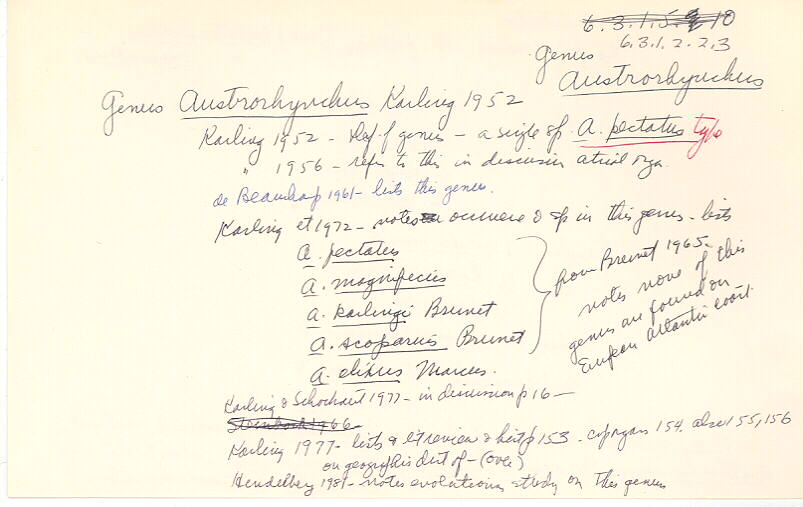 6.3.1.5.2 10
6.3.1.2.2.3
Genus
Austrorhynchus
Genus Austrorhynchus Karling 1952
Karling 1952 - Def of genus - a single sp. A. pectatus type
" 1956 - refers to this in discussion atrial orga.
de Beauchap 1961 - lists this genus.
Karling et 1972 - notes occurrence & sp in this genus - lists
A. pectatus
A. magnificus
A. karlingi Brunet
A. scoparius Brunet
A. elixus Marcus.
from Brunet 1965 -
notes none of this
genus are found on
European Atlantic coast.
Karling & Schockaert 1977 - in discussion p 16 -
Steinbock 1966
Karling 1977 - lists & lit review & hist p 153 - cop organs 154. also 155, 156
on geographic dist of - (over)
Hendelberg 1981 - notes evolutionary study on this genus